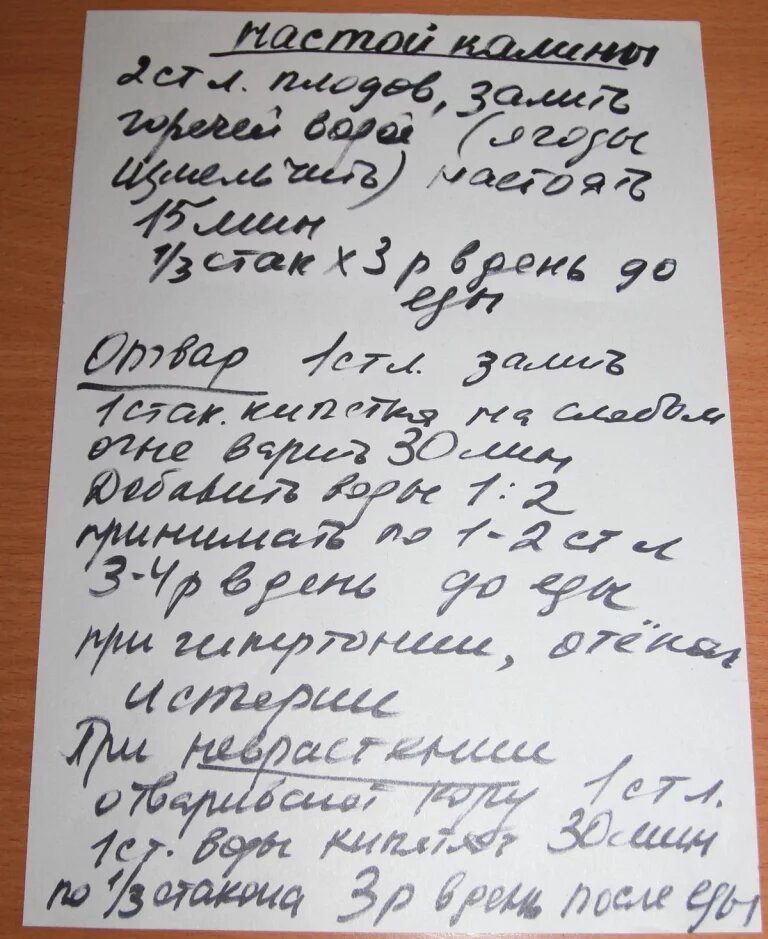 настой калины
2 ст л. плодов, залить
горячей водой (ягоды
измельчить) настоять
15 мин
1/3 стак х 3 р в день до
еды
Отвар 1 ст л. залить
1 стак. кипятка на слабом
огне варить 30 мин
Добавить воды 1:2
принимать по 1-2 ст л
3-4 р в день до еды
при гипертонии, отёках
истерии
При неврастении
отваривают кору 1 ст л.
1 ст. воды кипятят 30 мин
по 1/3 стакана 3 р в день после еды